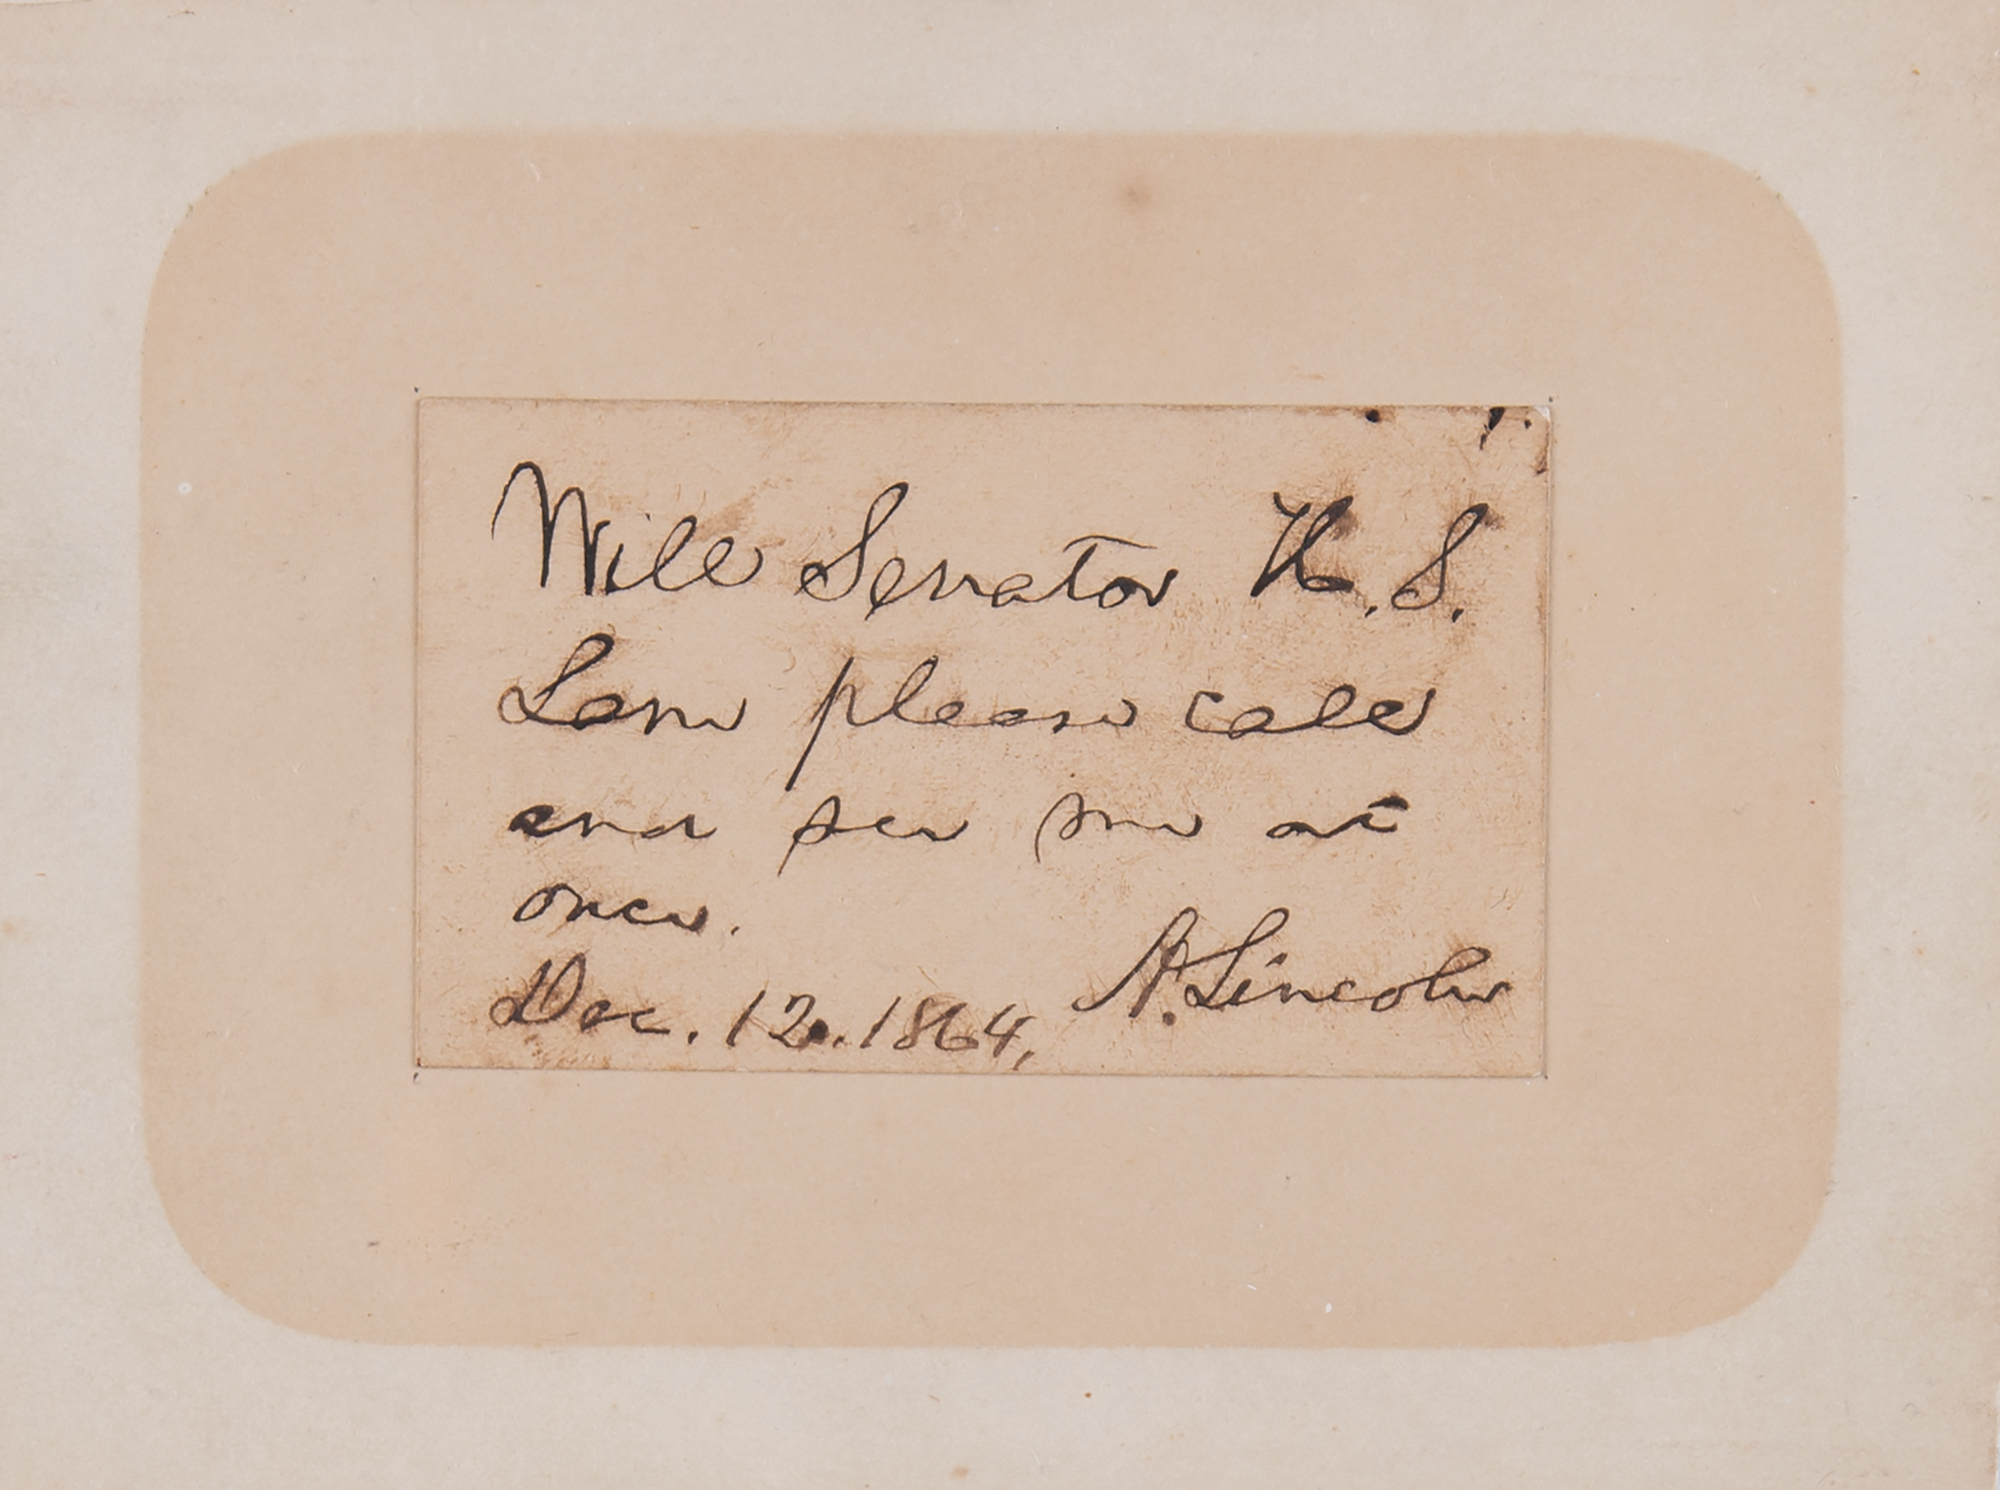 Will Senator H. S.
Lane please call
and see me at
once.
A. Lincoln
Dec. 12. 1864,